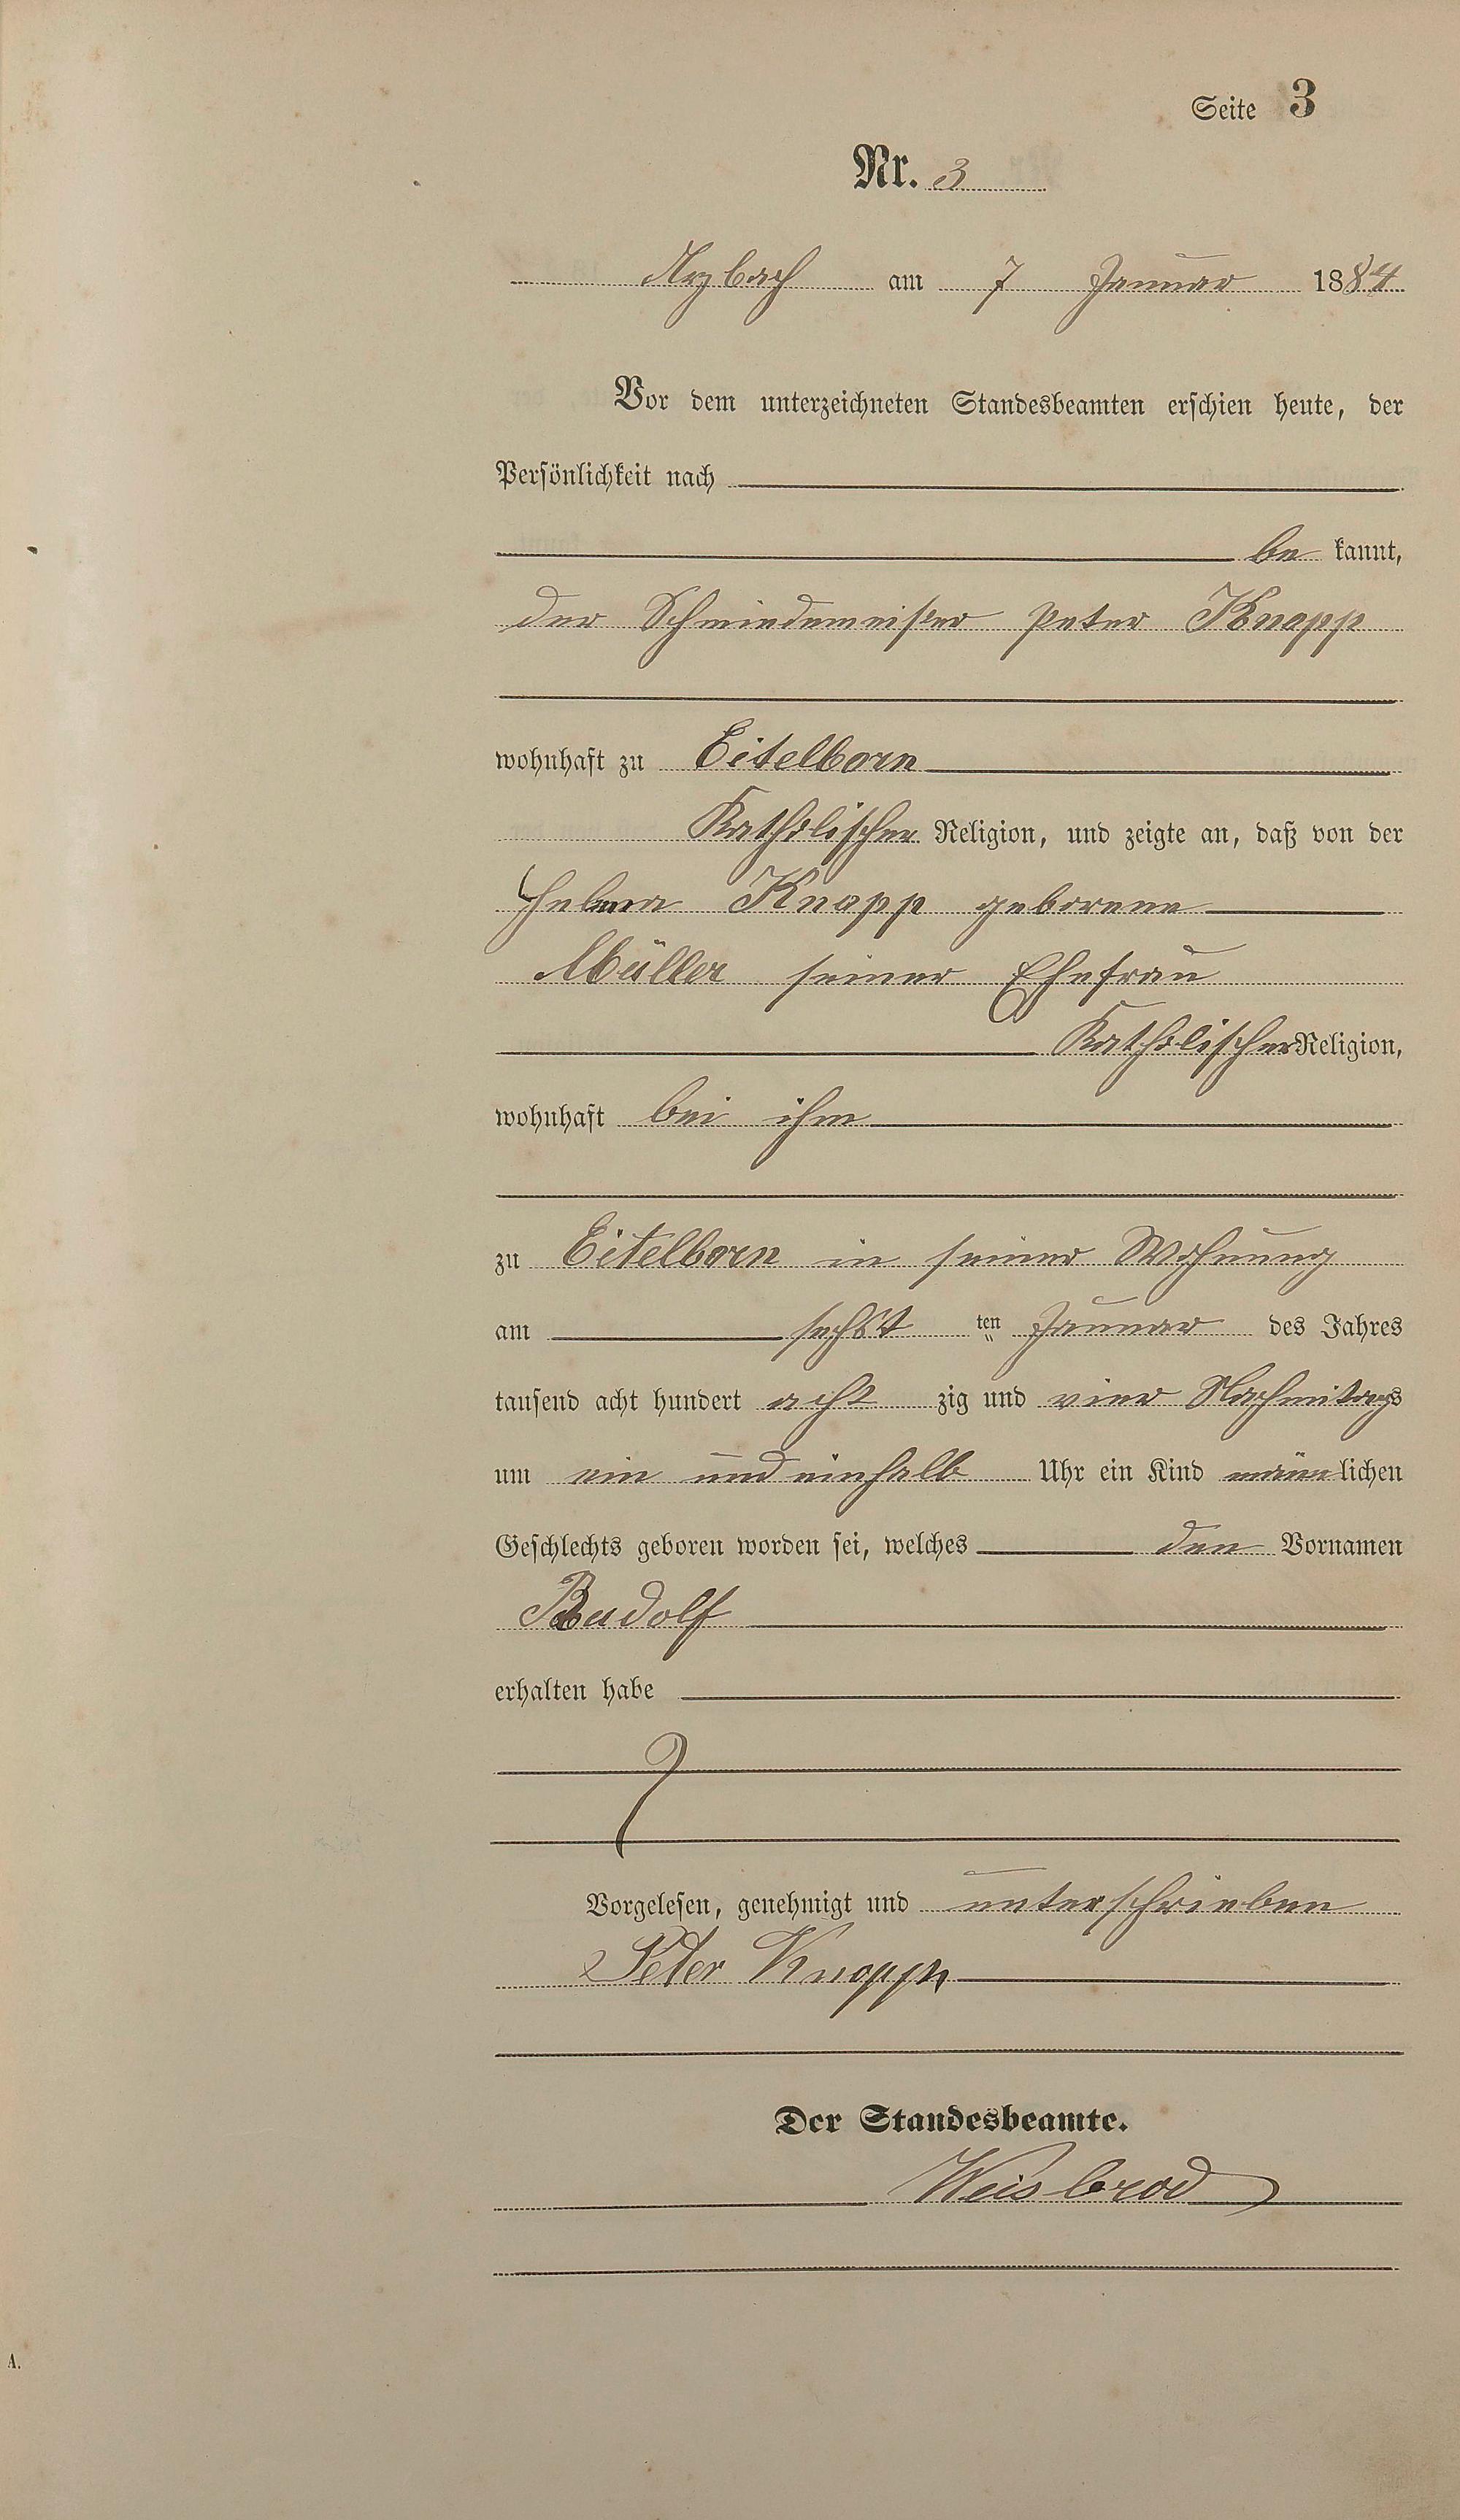 Seite 3
Nr. 3
Arzbach am 7 Januar 1884
Vor dem unterzeichneten Standesbeamten erschien heute, der
Persönlichkeit nach
be kannt,
der Schmiedemeister Peter Knopp
wohnhaft zu Eitelborn
Katholischer Religion, und zeigte an, daß von der
Knopp geborene
Müller seiner Ehefrau
Katholischer Religion,
wohnhaft bei ihm
zu Eitelborn in seiner Wohnung
am sechst ten Januar des Jahres
tausend acht hundert acht zig und vier Nachmitags
um ein und einhalb Uhr ein Kind männlichen
Geschlechts geboren worden sei, welches den Vornamen
Rudolf
erhalten habe
Vorgelesen, genehmigt und unterschrieben
Peter Knopp
Der Standesbeamte.
Weisbrod
A.